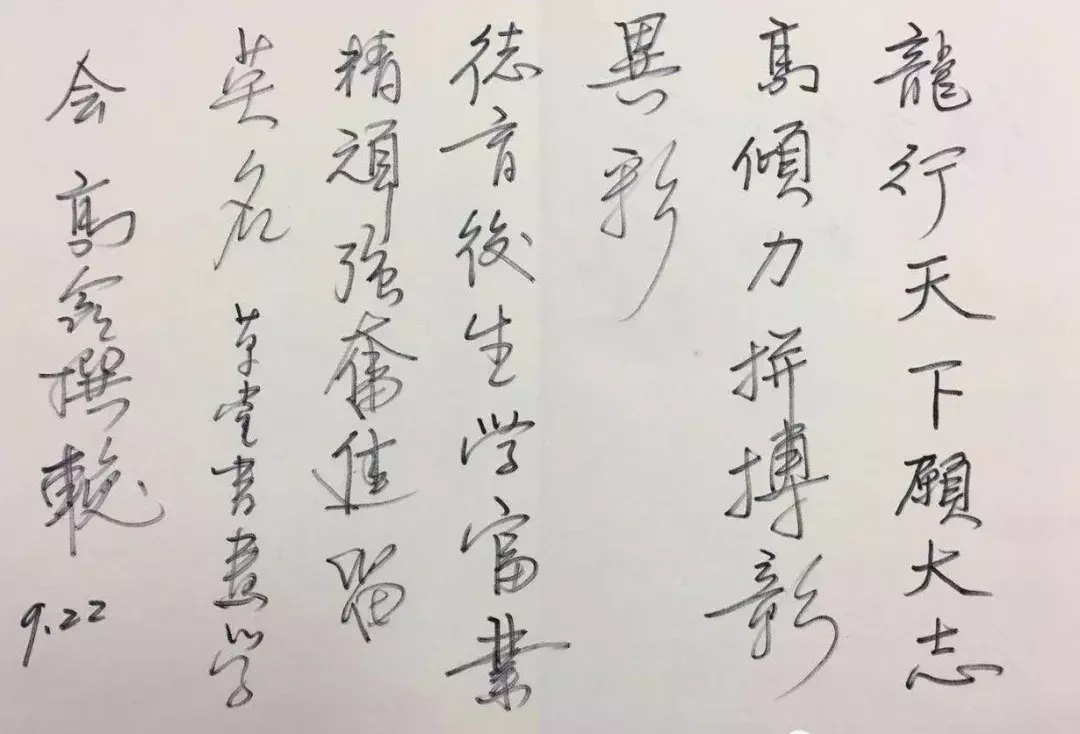 龍行天下願大志
高傾力拼搏彰
異彩
徳育後生学富業
精頑强奮進留
英名 草堂書畫学
会 高鑫撰
9.22